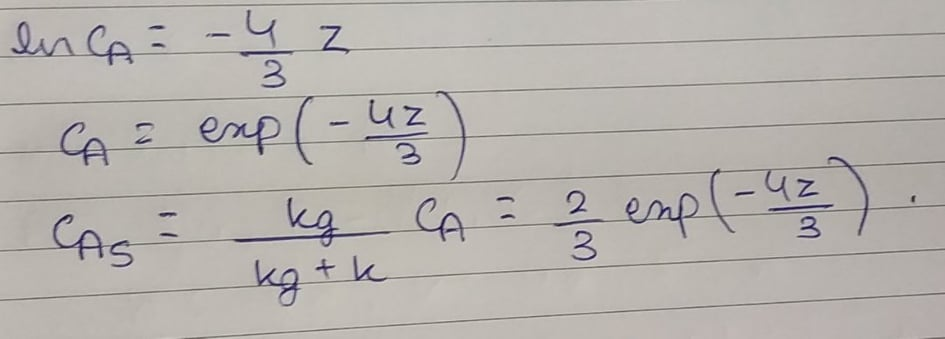 ln C_A = - 4/3 z
C_A = exp(- 4z/3)
C_As = kg/(kg + k) C_A = 2/3 exp(- 4z/3).